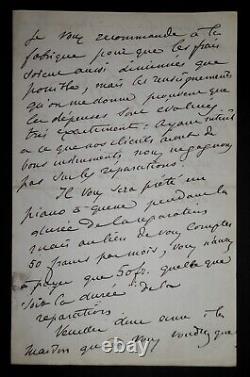 Je Vous recommande à la
fabrique pour que les frais
soient aussi minimes que
possible, mais les renseignements
qu'on me donne prouvent que
les dépenses sont évaluées
très exactement: Ayant intérêt
a ce que nos clients aient de
bons instruments nous negagnons
pas sur les reparations.
Il Vous sera prêté un
piano à queue pendant la
durée de la reparation
mais au lieu de Vous Compter
50 francs par mois, Vous n'aurez
à payer que 50 fr. quelle que
soit la durée de la
reparation
Veuillez donc à la
maison que Vous voudrez que